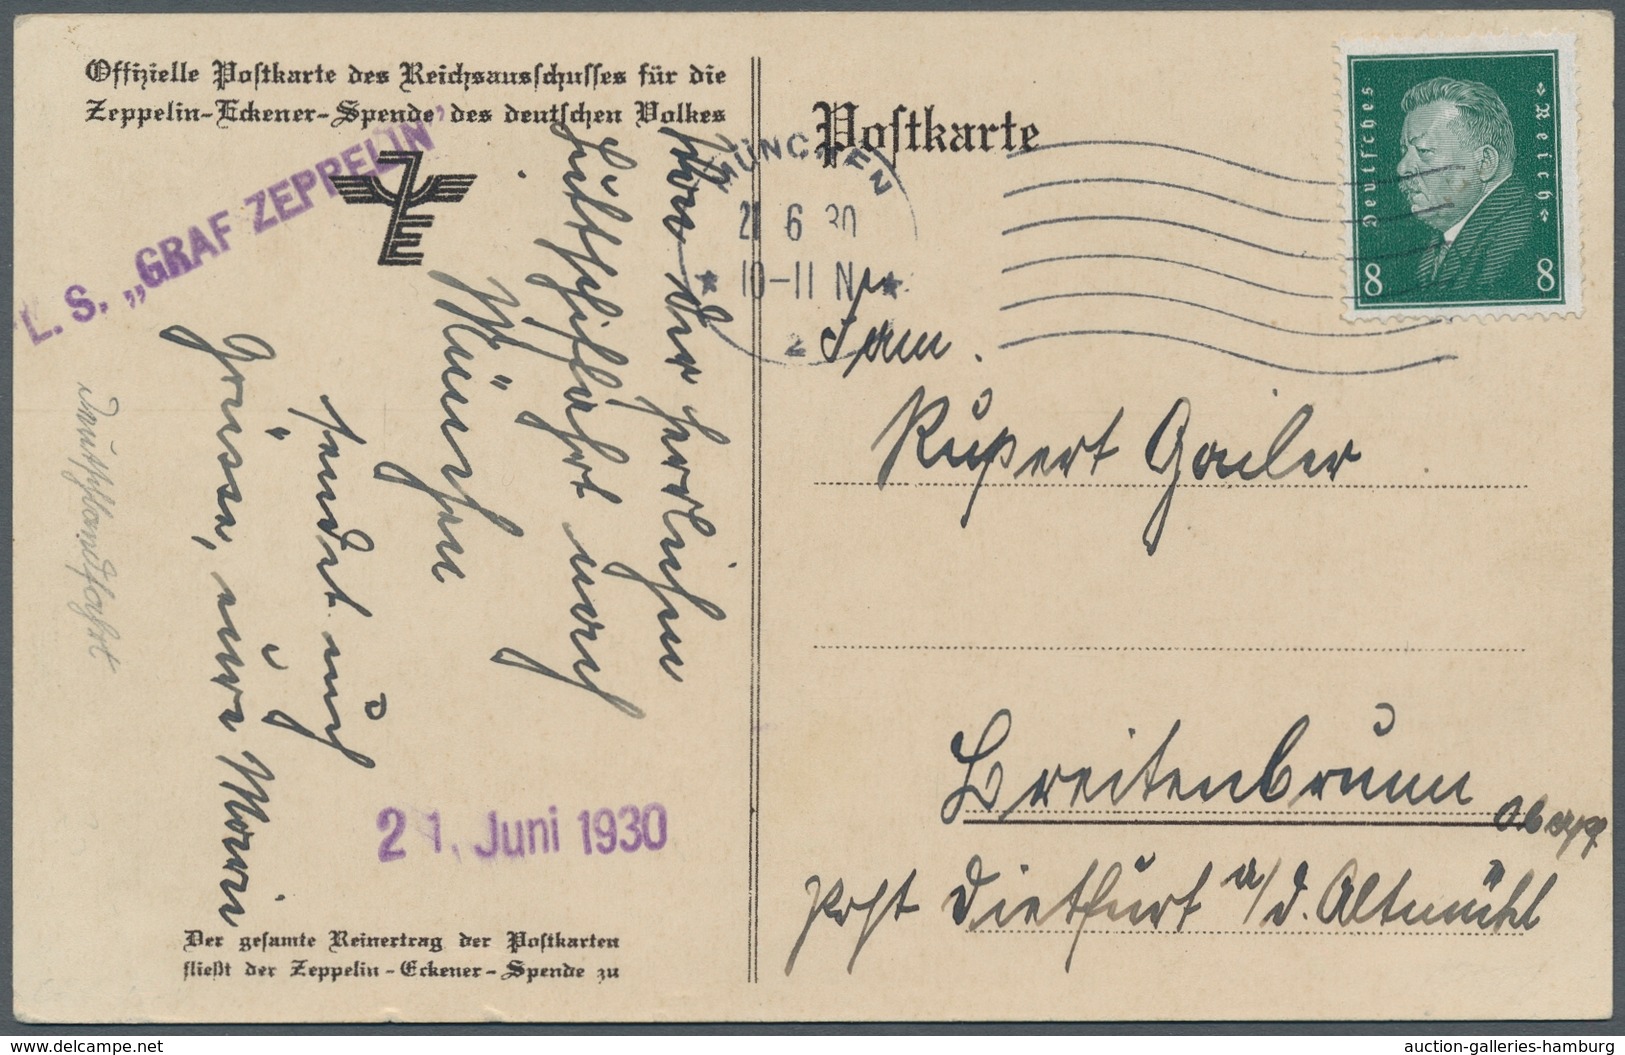 Offizielle Postkarte des Reichsausschusses für die
Zeppelin-Eckener-Spende des deutschen Volkes
L. S. „GRAF ZEPPELIN"
ZE
Von der herrlichen
Luftschiffahrt nach
München
sendet euch
Grüsse, eure Marie
Deutschlandfahrt
21. Juni 1930
Der gesamte Reinertrag der Postkarten
fließt der Zeppelin-Eckener-Spende zu
Postkarte
MÜNCHEN
21 6 30
10-11 N
2
Deutsches
Reich
8 8
Fam.
Rupert Gailer
Breitenbrunn
Oberpf.
Post Dietfurt a/d. Altmühl
www.delcampe.net
auction-galleries-hamburg